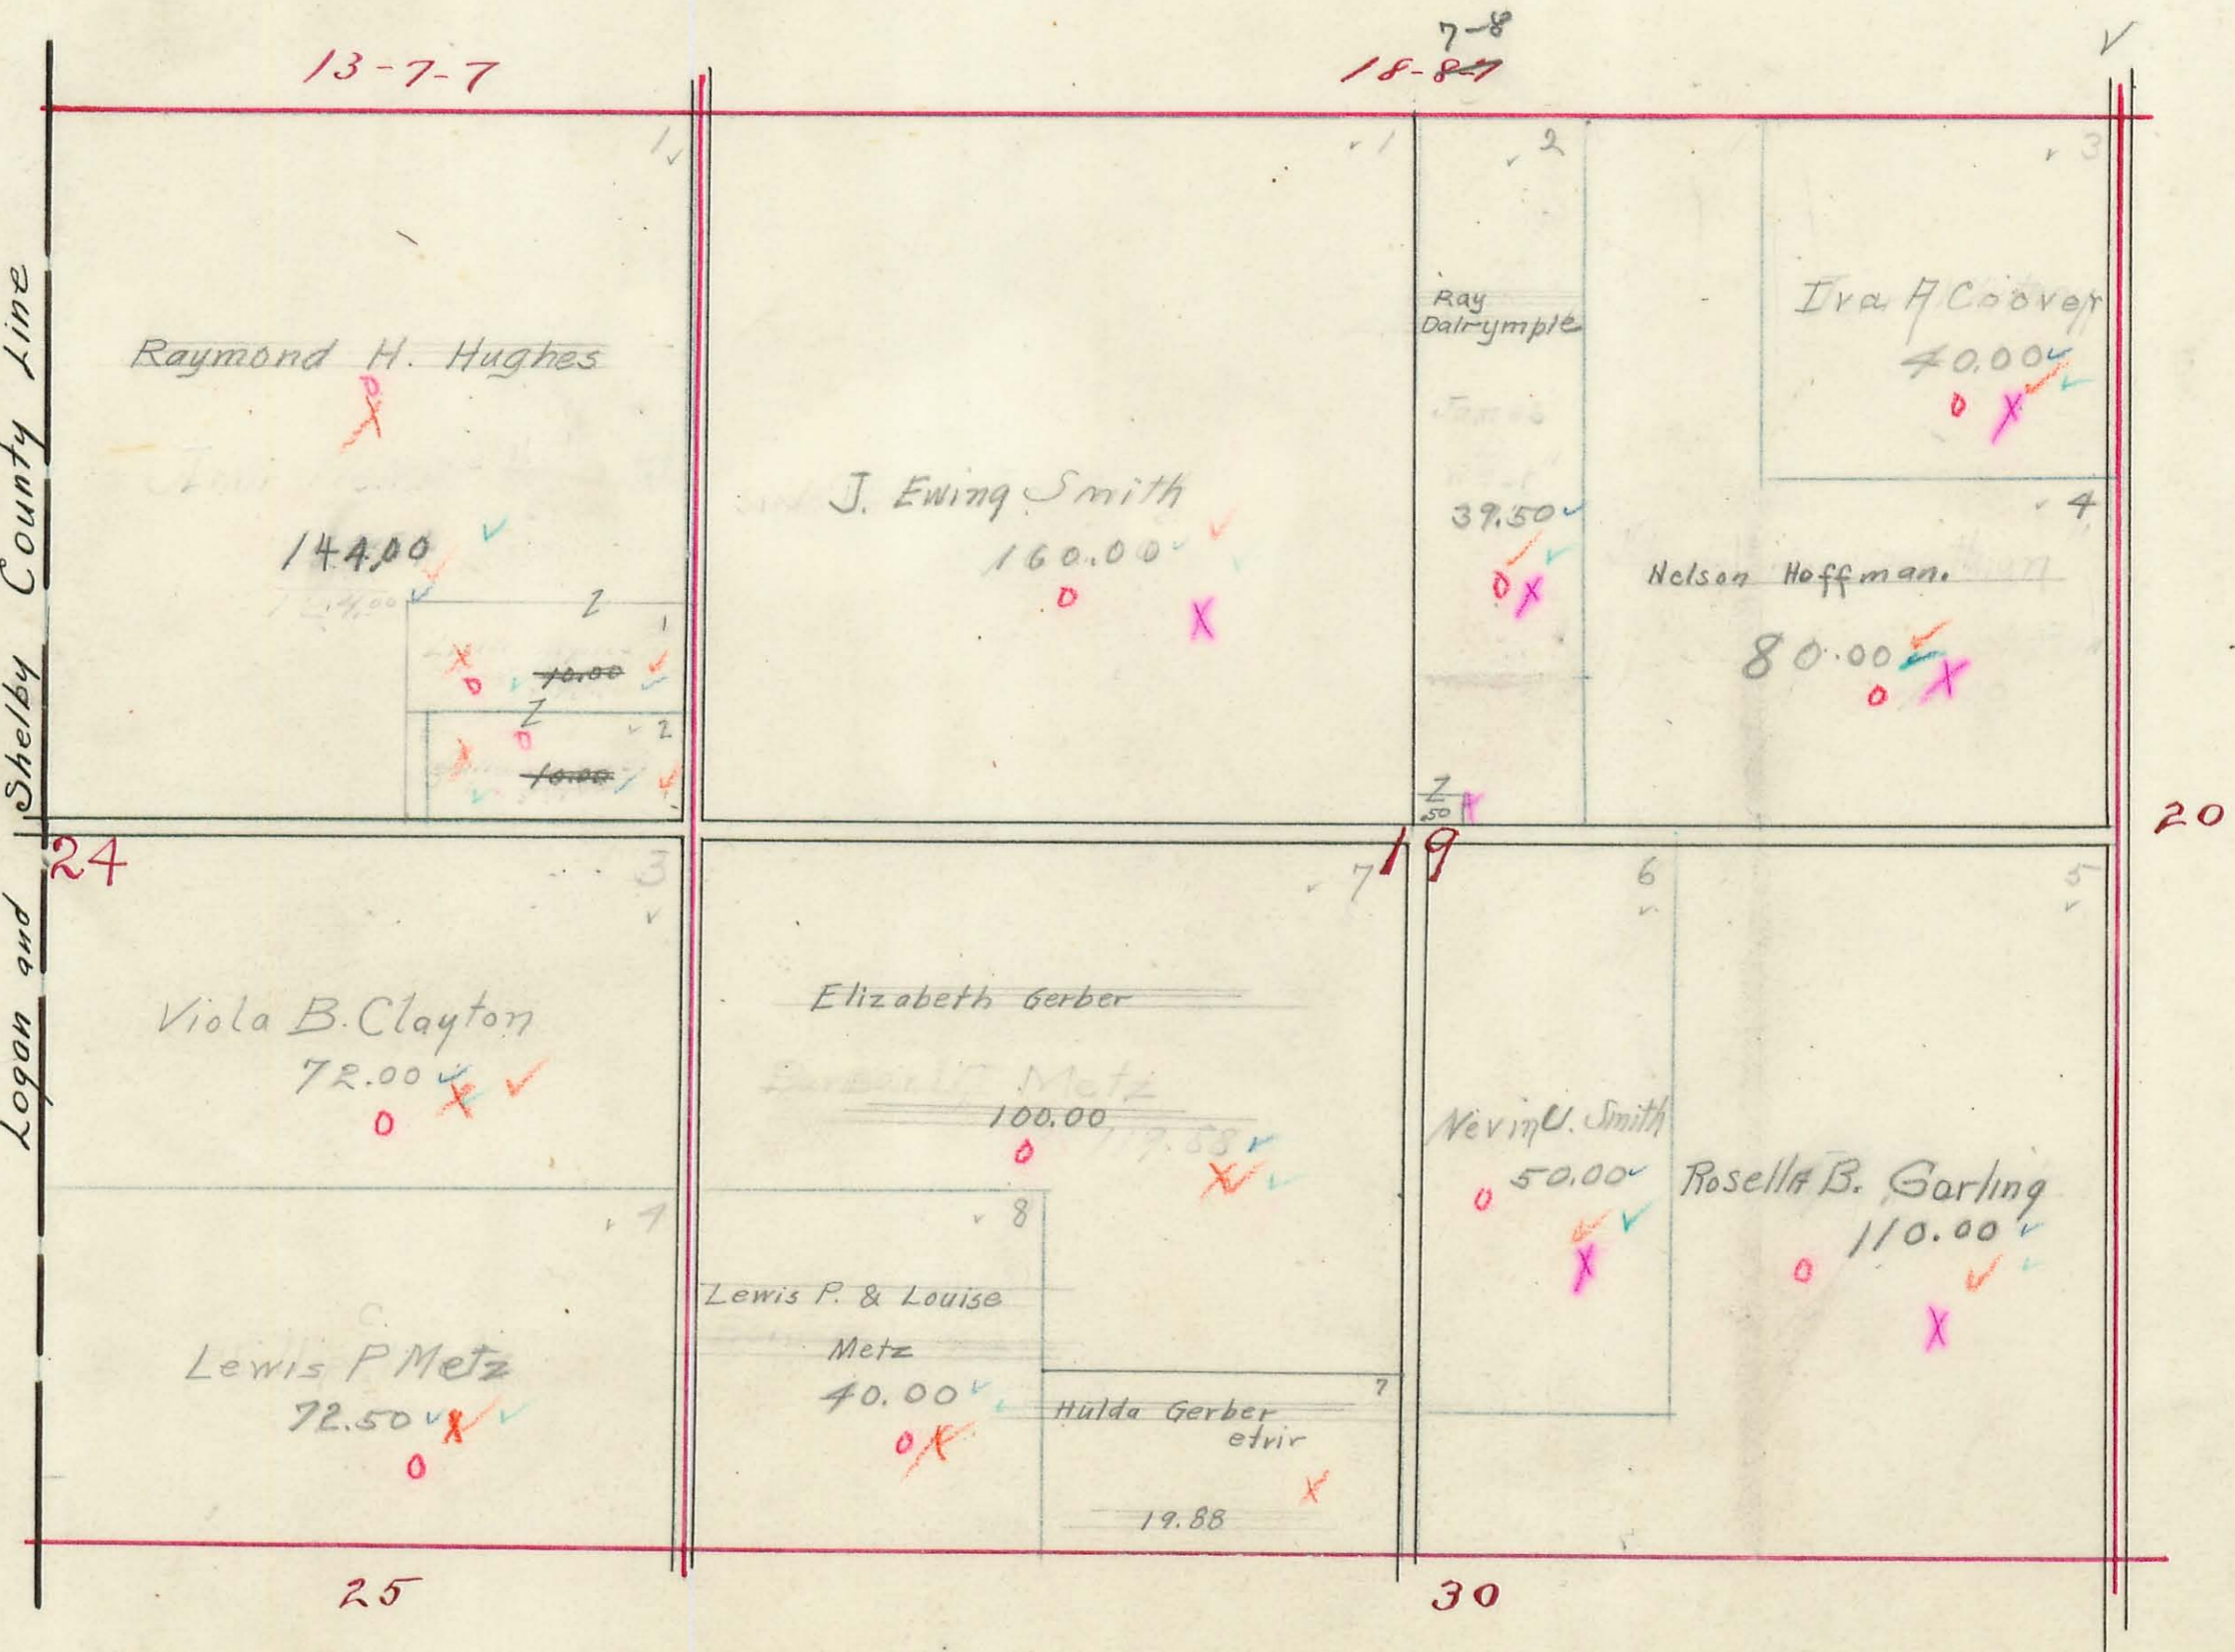 7-8
13-7-7
18-8-7
Logan and Shelby County Line
1
Raymond H. Hughes
144.00
Z
1
10.00
Z
2
10.00
1
J. Ewing Smith
160.00
2
Ray
Dalrymple
39.50
Z
50
3
Iva A Coover
40.00
4
Nelson Hoffman.
80.00
24
19
20
3
Viola B. Clayton
72.00
4
Lewis P Metz
72.50
7
Elizabeth Gerber
Metz
100.00
119.88
8
Lewis P. & Louise
Metz
40.00
7
Hulda Gerber
etvir
19.88
6
Nevin U. Smith
50.00
5
Rosella B. Garling
110.00
25
30